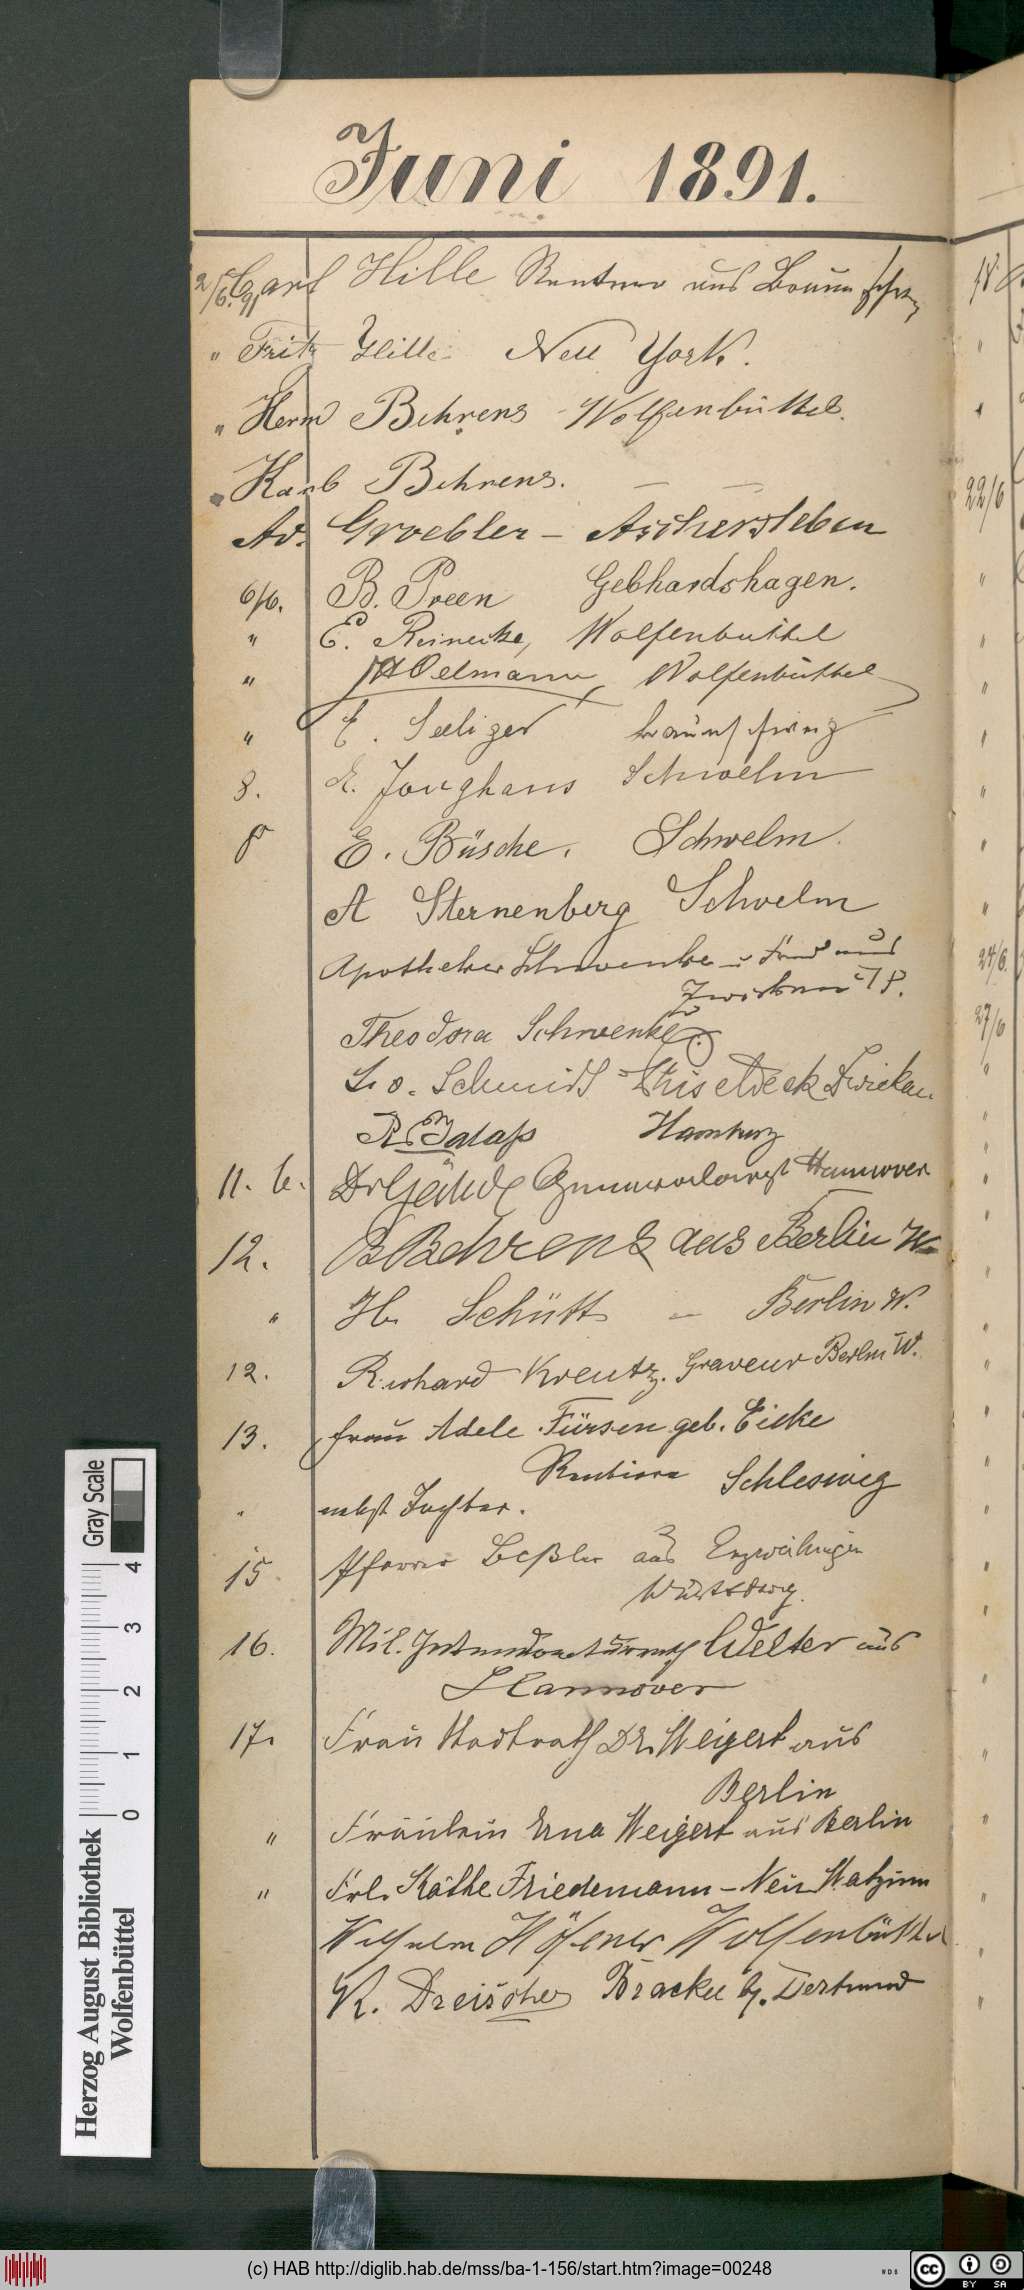 Juni 1891.
2/6. 91 Carl Hille Rentner aus Braunschwg
" Fritz Hille New York.
" Herm Behrens Wolfenbüttel.
" Karl Behrens. — —
Ad. Groebler – Aschersleben
6/6. B. Preen Gebhardshagen.
" E. Reinecke, Wolfenbüttel
" Oelmann Wolfenbüttel
" E. Seeliger Braunschweig
8. E. Junghans Schwelm
8 E. Büsche. Schwelm.
A Sternenberg Schwelm
Apotheker Schwenke u Frau aus
Zwickau i/S.
Theodora Schwenke
Schmidt Zwickau
R. Hamburg
11. 6. Dr Hannover
12. B Behrens aus Berlin W.
" H. Schütt – Berlin W.
12. Richard Kreutz. Graveur Berlin W.
13. Frau Adele Fürsen geb. Eicke
Rentiere Schleswig
" nebst Tochter.
15. Pfarrer aus Enzweihingen
Württberg.
16. Mil. Intendanturrath Welter aus
Hannover
17. Frau Stadtrath Dr. Weigert aus
Berlin
" Fräulein Erna Weigert aus Berlin
" Frl. Käthe Friedemann – Neu
Wilhelm Wolfenbüttel
K. Dreischer Brackel b/. Dortmund
18.
22/6
24/6.
27/6
Gray Scale
4
3
2
1
0
Herzog August Bibliothek
Wolfenbüttel
(c) HAB http://diglib.hab.de/mss/ba-1-156/start.htm?image=00248
cc BY SA